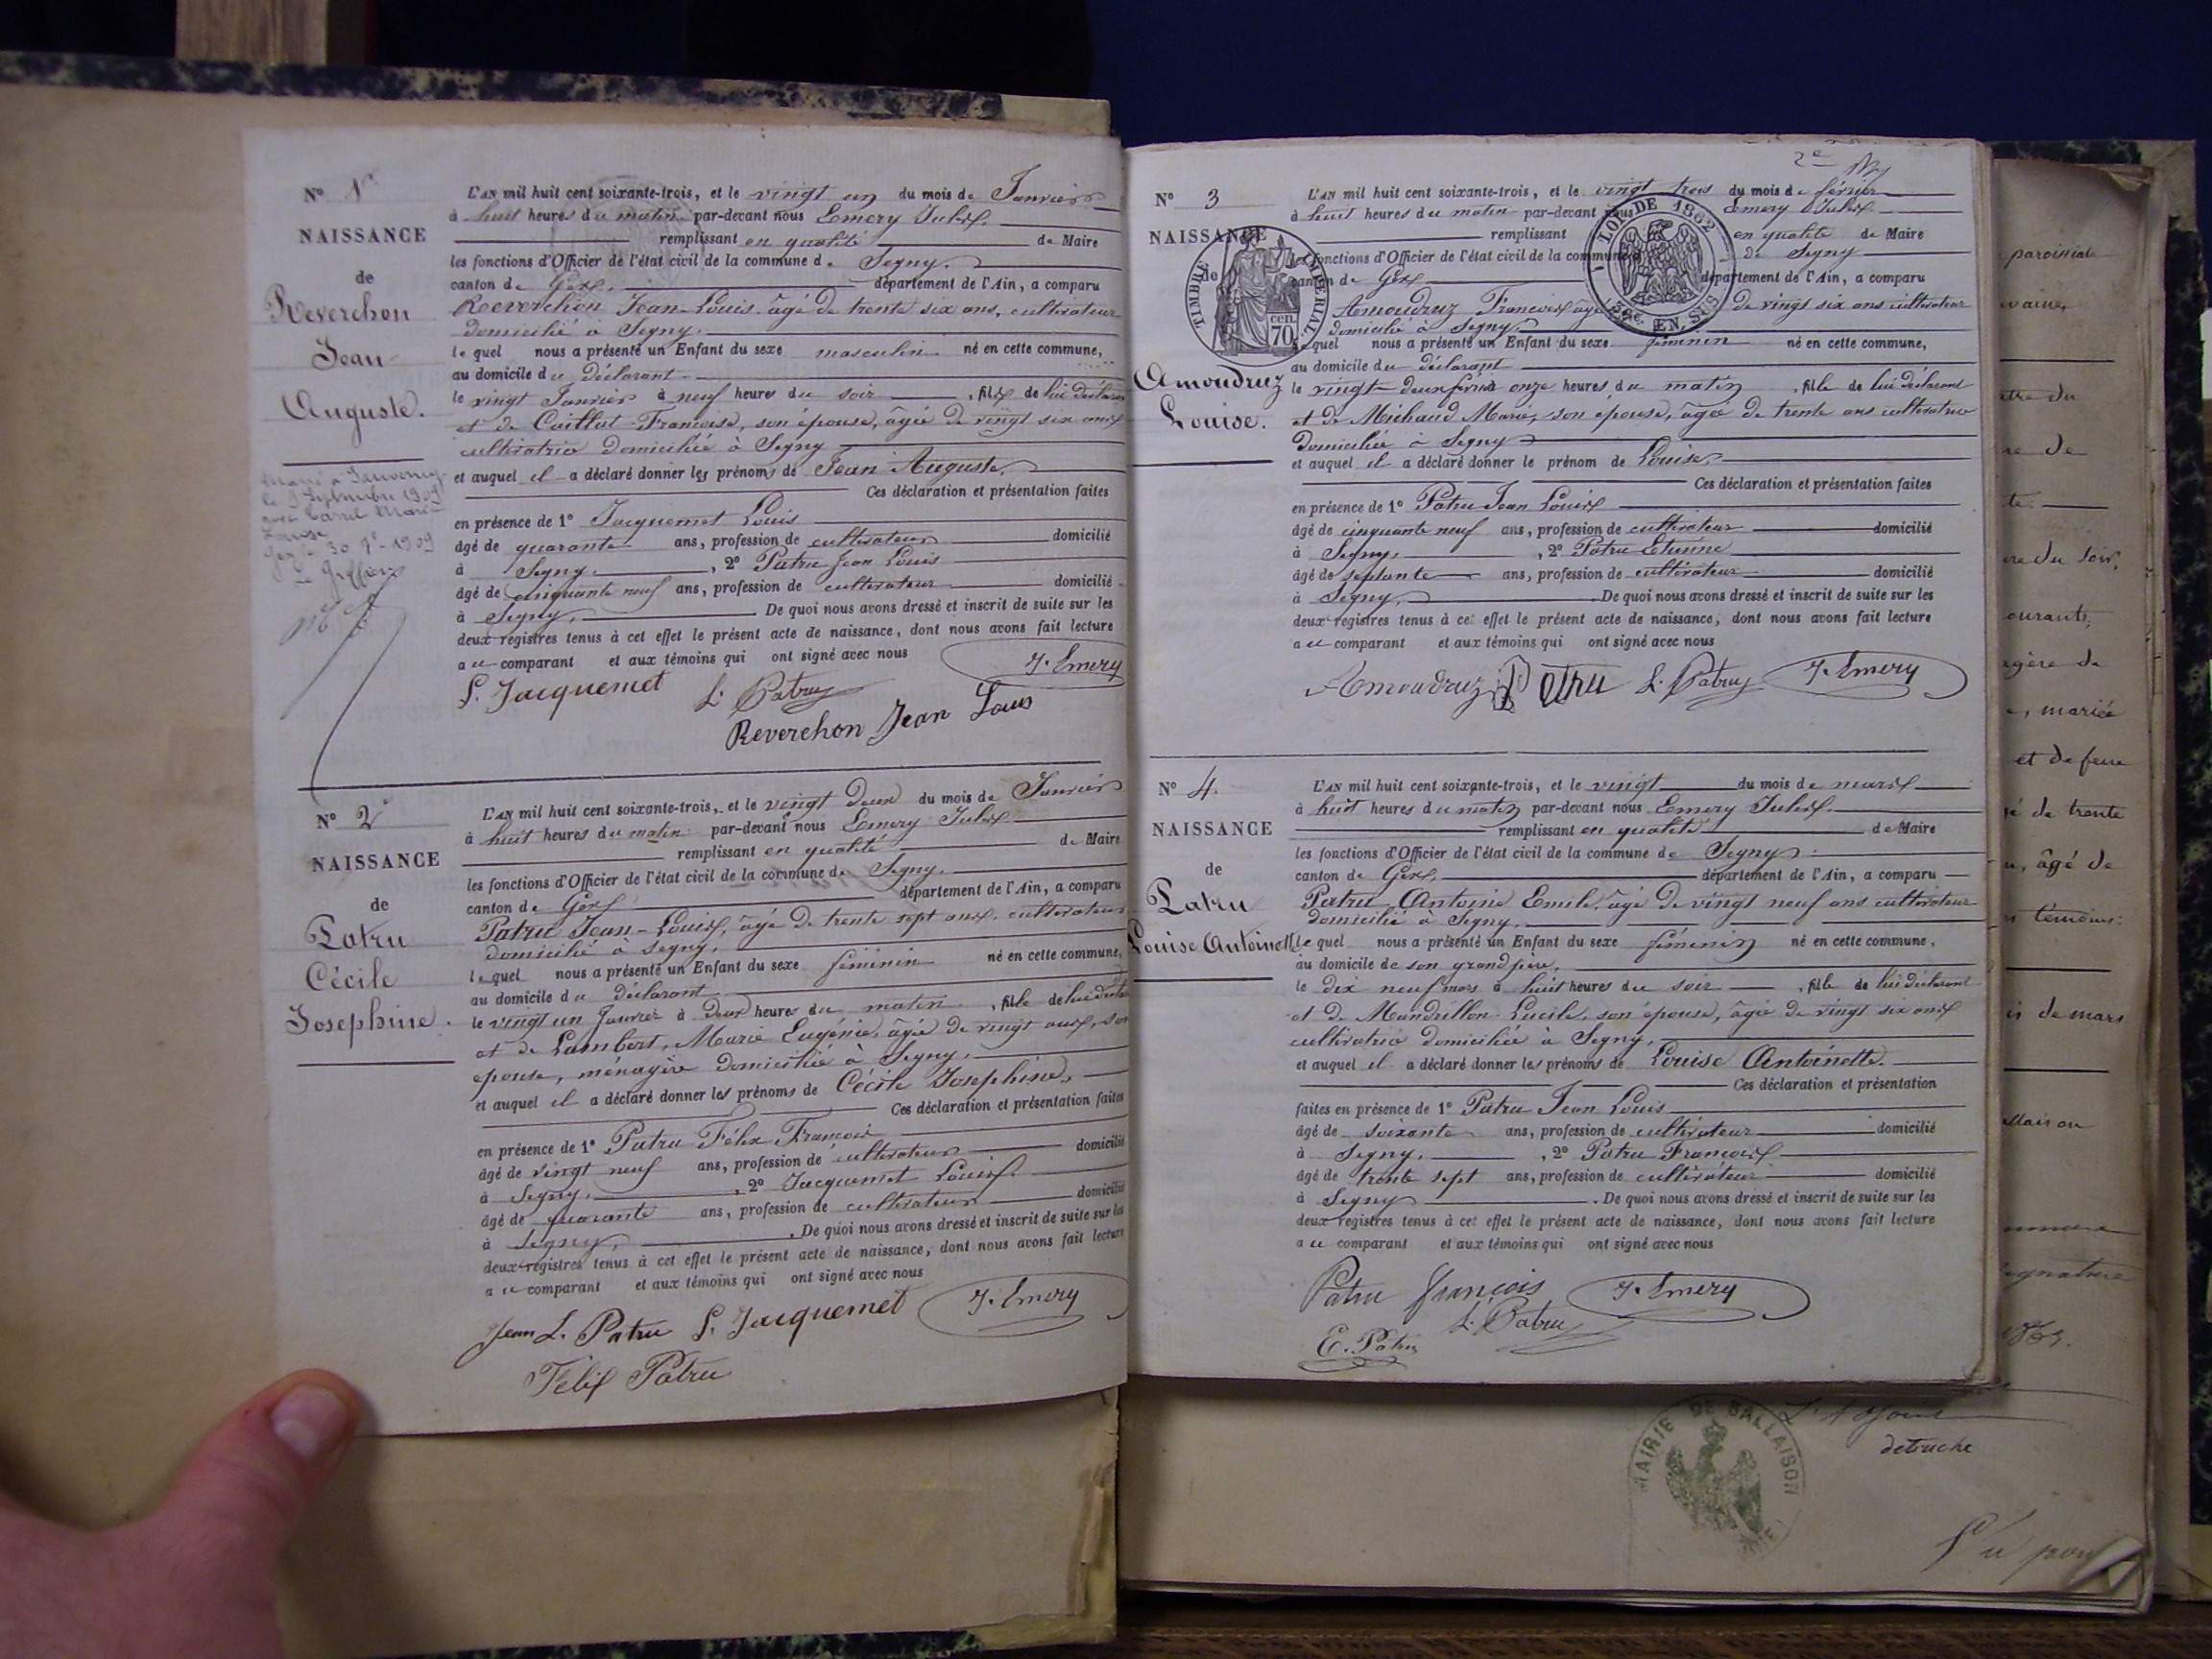 N° 1
NAISSANCE
de
Reverchon
Jean
Auguste.
Marié à Sauverny
le 9 Septembre 1909
avec
Louise
Gex le 30 9e 1909
Le Greffier
L'AN mil huit cent soixante-trois, et le vingt un du mois de Janvier
à huit heures du matin par-devant nous Emery Jules
remplissant en qualité de Maire
les fonctions d'Officier de l'état civil de la commune de Segny.
canton de Gex. département de l'Ain, a comparu
Reverchon Jean-Louis âgé de trente six ans, cultivateur
domicilié à Segny.
lequel nous a présenté un Enfant du sexe masculin né en cette commune,
au domicile du déclarant
le vingt Janvier à neuf heures du soir, fils de lui déclarant
et de Caillat Françoise, son épouse, âgée de vingt six ans
cultivatrice domiciliée à Segny
et auquel il a déclaré donner les prénoms de Jean Auguste.
Ces déclaration et présentation faites
en présence de 1° Jacquemet Louis
âgé de quarante ans, profession de cultivateur domicilié
à Segny, 2° Patru Jean Louis
âgé de cinquante neuf ans, profession de cultivateur domicilié
à Segny, De quoi nous avons dressé et inscrit de suite sur les
deux registres tenus à cet effet le présent acte de naissance, dont nous avons fait lecture
au comparant et aux témoins qui ont signé avec nous
L. Jacquemet L. Patru J. Emery
Reverchon Jean Louis
N° 2
NAISSANCE
de
Patru
Cécile
Josephine.
L'AN mil huit cent soixante-trois, et le vingt deux du mois de Janvier
à huit heures du matin par-devant nous Emery Jules
remplissant en qualité de Maire
les fonctions d'Officier de l'état civil de la commune de Segny.
canton de Gex département de l'Ain, a comparu
Patru Jean-Louis, âgé de trente sept ans, cultivateur
domicilié à Segny.
lequel nous a présenté un Enfant du sexe féminin né en cette commune,
au domicile du déclarant
le vingt un Janvier à deux heures du matin, fille de lui déclarant
et de Lambert, Marie Eugénie, âgée de vingt ans, son
épouse, ménagère domiciliée à Segny.
et auquel il a déclaré donner les prénoms de Cécile Josephine.
Ces déclaration et présentation faites
en présence de 1° Patru Félix François
âgé de vingt neuf ans, profession de cultivateur domicilié
à Segny. 2° Jacquemet Louis.
âgé de quarante ans, profession de cultivateur domicilié
à Segny, De quoi nous avons dressé et inscrit de suite sur les
deux registres tenus à cet effet le présent acte de naissance, dont nous avons fait lecture
au comparant et aux témoins qui ont signé avec nous
Jean L. Patru L. Jacquemet J. Emery
Félix Patru
2e
N° 3
NAISSANCE
de
Amoudruz
Louise.
TIMBRE IMPERIAL
cen. 70
LOI DE 1862
EN SUS
L'AN mil huit cent soixante-trois, et le vingt trois du mois de février
à huit heures du matin par-devant nous Emery Jules
remplissant en qualité de Maire
les fonctions d'Officier de l'état civil de la commune de Segny
canton de Gex département de l'Ain, a comparu
Amoudruz François âgé de vingt six ans cultivateur
domicilié à Segny.
lequel nous a présenté un Enfant du sexe féminin né en cette commune,
au domicile du déclarant
le vingt-deux février onze heures du matin, fille de lui déclarant
et de Michaud Marie, son épouse, âgée de trente ans cultivatrice
domiciliée à Segny
et auquel il a déclaré donner le prénom de Louise.
Ces déclaration et présentation faites
en présence de 1° Patru Jean Louis
âgé de cinquante neuf ans, profession de cultivateur domicilié
à Segny, 2° Patru Etienne
âgé de septante ans, profession de cultivateur domicilié
à Segny, De quoi nous avons dressé et inscrit de suite sur les
deux registres tenus à cet effet le présent acte de naissance, dont nous avons fait lecture
au comparant et aux témoins qui ont signé avec nous
Amoudruz Patru L. Patru J. Emery
N° 4.
NAISSANCE
de
Patru
Louise Antoinette
L'AN mil huit cent soixante-trois, et le vingt du mois de mars
à huit heures du matin par-devant nous Emery Jules.
remplissant en qualité de Maire
les fonctions d'Officier de l'état civil de la commune de Segny
canton de Gex. département de l'Ain, a comparu
Patru Antoine Emile, âgé de vingt neuf ans cultivateur
domicilié à Segny.
lequel nous a présenté un Enfant du sexe féminin né en cette commune,
au domicile de son grand père.
le dix neuf mars à huit heures du soir, fille de lui déclarant
et de Mandrillon Lucile, son épouse, âgée de vingt six ans
cultivatrice domiciliée à Segny.
et auquel il a déclaré donner les prénoms de Louise Antoinette.
Ces déclaration et présentation
faites en présence de 1° Patru Jean Louis
âgé de soixante ans, profession de cultivateur domicilié
à Segny. 2° Patru François
âgé de trente sept ans, profession de cultivateur domicilié
à Segny. De quoi nous avons dressé et inscrit de suite sur les
deux registres tenus à cet effet le présent acte de naissance, dont nous avons fait lecture
au comparant et aux témoins qui ont signé avec nous
Patru François J. Emery
L. Patru
E. Patru
paroissiale
re de
re du soir,
ourante,
agère de
, mariée
et de feue
é de trente
, âgé de
témoins:
de mars
signature
MAIRIE DE SALLAISON
detruche